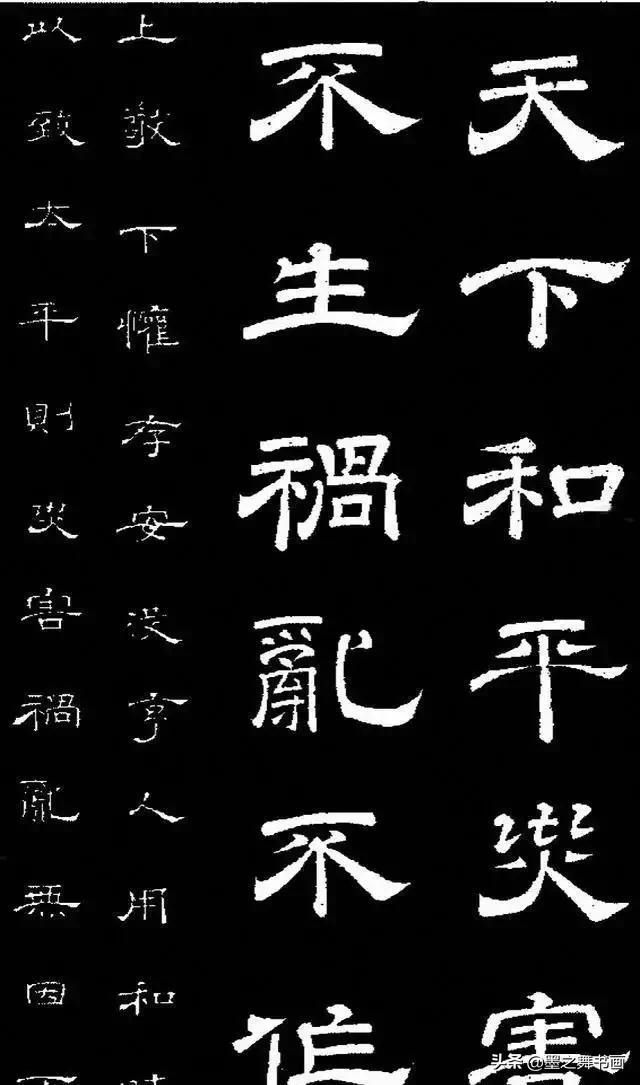 天下和平災害
不生禍亂不作
上敬下懽存安没享人用和
以致太平則災害禍亂無因
头条 @墨之舞书画